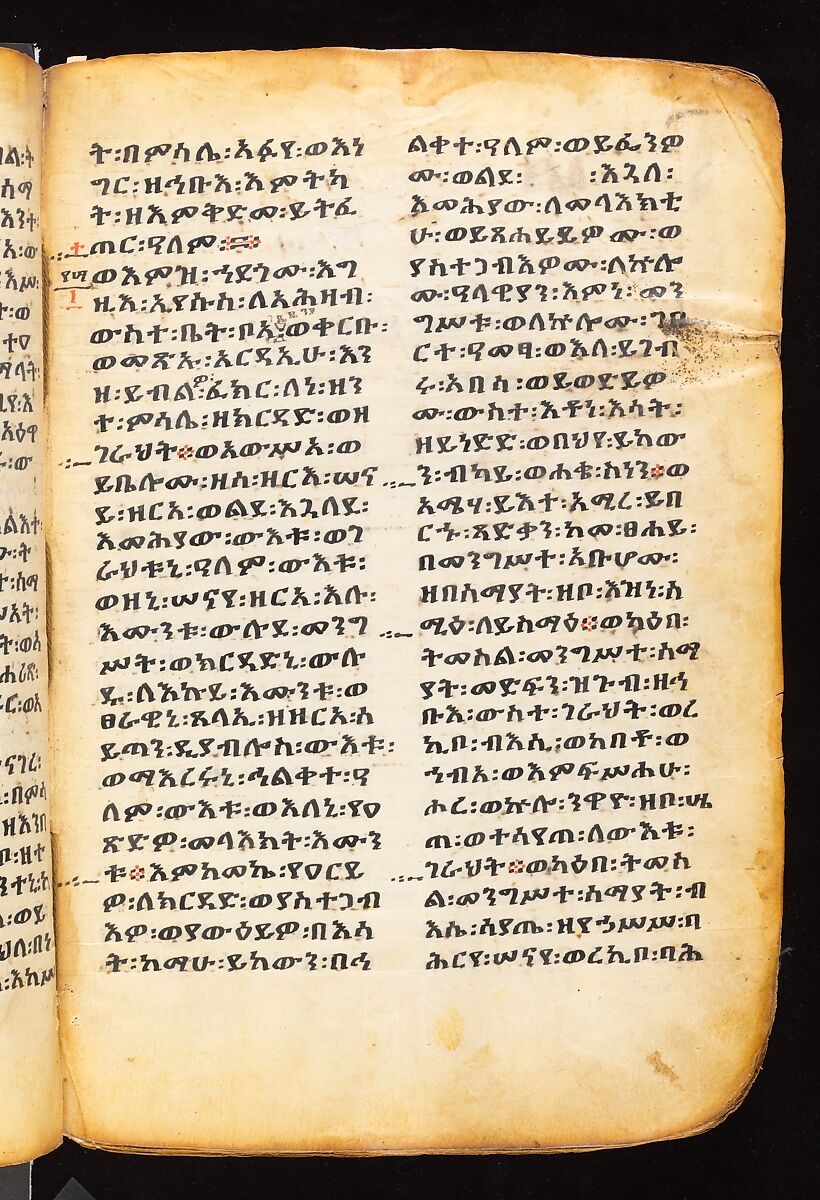 ት፡በምሳሌ፡አፉየ፡ወእነ
ግር፡ዘኅቡእ፡እምትካ
ት፡ዘእምቅድመ፡ይትፈ
ጠር፡ዓለም፡፡
ወእምዝ፡ኀደጎሙ፡እግ
ዚእ፡ኢየሱስ፡ለአሕዛብ፡
ውስተ፡ቤት፡ቦአ፡ወቀርቡ፡
ወመጽኡ፡አርዳኢሁ፡እን
ዘ፡ይብልዎ፡ፈክር፡ለነ፡ዘን
ተ፡ምሳሌ፡ዘክርዳድ፡ወዘ
ገራህት፨ወአውሥአ፡ወ
ይቤሎሙ፡ዘሰ፡ዘርእ፡ሠና
ይ፡ዘርአ፡ወልደ፡እጓለይ፡
እመሕያው፡ውእቱ፡ወገ
ራህቱኒ፡ዓለም፡ውእቱ፡
ወዘኒ፡ሠናየ፡ዘርአ፡እሉ፡
እሙንቱ፡ውሉደ፡መንግ
ሥት፡ወክርዳድኒ፡ውሉ
ዱ፡ለእኩይ፡እሙንቱ፡ወ
ፀራዊኒ፡ጸላኢ፡ዘዘርአ፡ሰ
ይጣን፡ዲያብሎስ፡ውእቱ፡
ወማእረሩኒ፡ኅልቀተ፡ዓ
ለም፡ውእቱ፡ወእለኒ፡የዐ
ጽድዎ፡መላእክት፡እሙን
ቱ፨እምከመኬ፡የዐርይ
ዎ፡ለክርዳድ፡ወያስተጋብ
እዎ፡ወያውዕይዎ፡በእሳ
ት፡ከማሁ፡ይከውን፡በኅ
ልቀተ፡ዓለም፡ወይፌንዎ
ሙ፡ወልደ፡ ፡እጓለ፡
እመሕያው፡ለመላእክቲ
ሁ፡ወይጸሐይይዎሙ፡ወ
ያስተጋብእዎሙ፡ለኵሎ
ሙ፡ዓላዊያን፡እምነ፡መን
ግሥቱ፡ወለኵሎሙ፡ገበ
ርተ፡ዓመፃ፡ወእለ፡ይገብ
ሩ፡አበሳ፡ወይወድይዎ
ሙ፡ውስተ፡እቶነ፡እሳት፡
ዘይነድድ፡ወበህየ፡ይከው
ን፡ብካይ፡ወሐቄ፡ስነን፨ወ
አሜሃ፡ይእተ፡አሚረ፡ይበ
ርኁ፡ጻድቃን፡ከመ፡ፀሐይ፡
በመንግሥተ፡አቡሆሙ፡
ዘበሰማያት፡ዘቦ፡እዝነ፡ሰ
ሚዕ፡ለይስማዕ፨ወካዕበ፡
ትመስል፡መንግሥተ፡ሰማ
ያት፡መድፍን፡ዝጉብ፡ዘኀ
ቡእ፡ውስተ፡ገራህት፡ወረ
ኪቦ፡ብእሲ፡ወከበቶ፡ወ
ኀብአ፡ወእምፍሥሐሁ፡
ሖረ፡ወኵሎ፡ንዋዮ፡ዘቦ፡ሤ
ጠ፡ወተሳየጠ፡ለውእቱ፡
ገራህት፨ወካዕበ፡ትመስ
ል፡መንግሥተ፡ሰማያት፡ብ
እሴ፡ሳያጤ፡ዘየኃሥሥ፡ባ
ሕርየ፡ሠናየ፡ወረኪቦ፡ባሕ